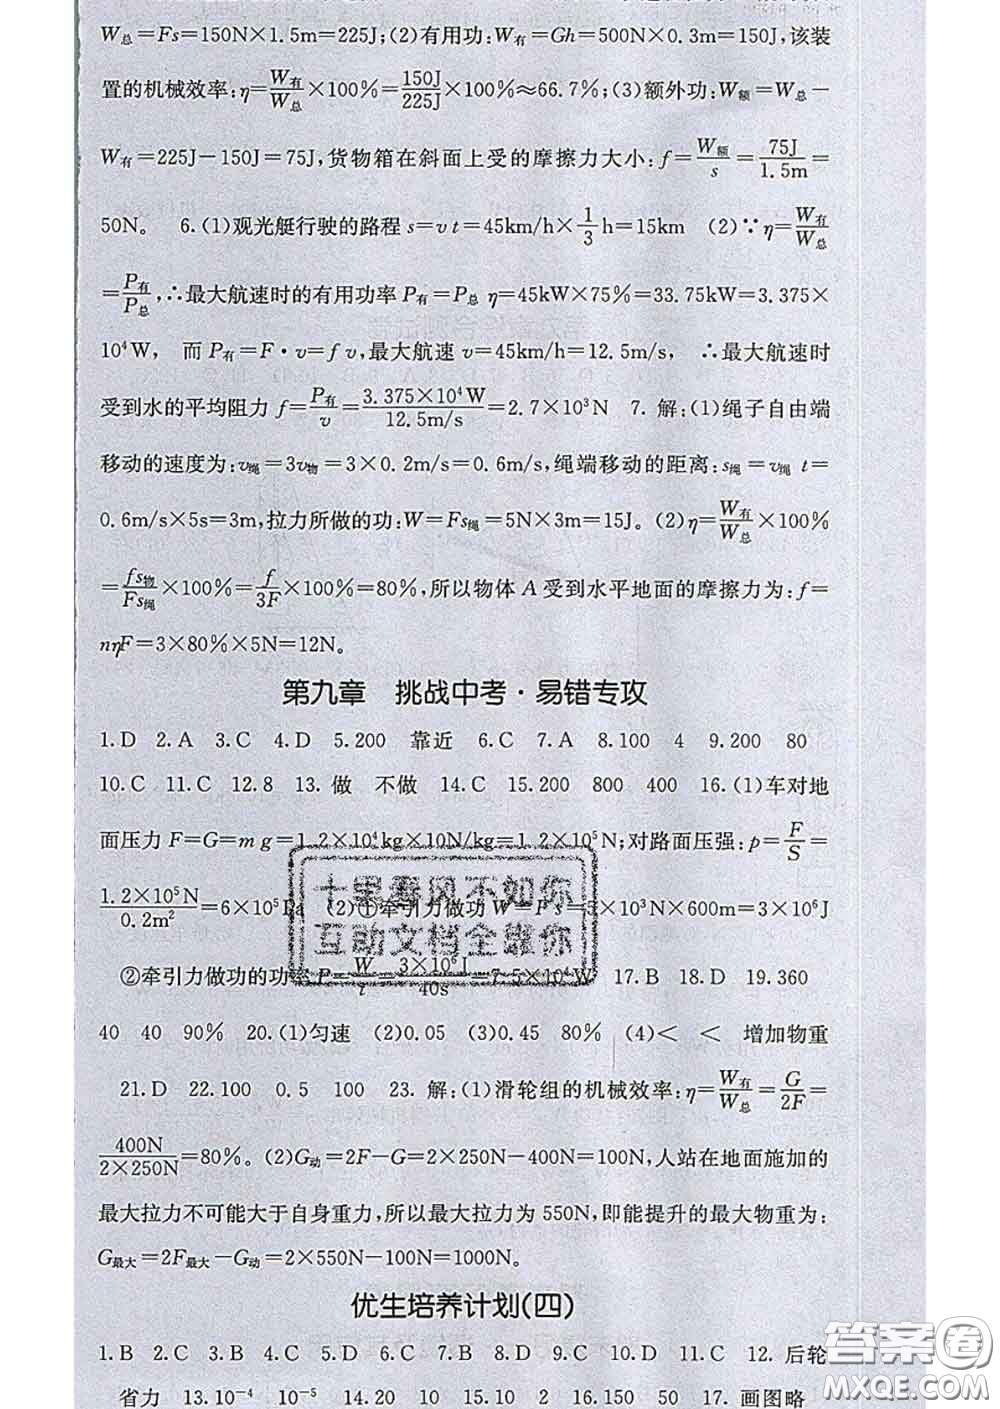 W总=Fs=150N×1.5m=225J;(2)有用功:W有=Gh=500N×0.3m=150J,该装
置的机械效率:η=W有/W总×100%=150J/225J×100%≈66.7%;(3)额外功:W额=W总-
W有=225J-150J=75J,货物箱在斜面上受的摩擦力大小:f=W额/s=75J/1.5m=
50N。 6.(1)观光艇行驶的路程s=vt=45km/h×1/3h=15km (2)∵η=W有/W总
=P有/P总,∴最大航速时的有用功率P有=P总η=45kW×75%=33.75kW=3.375×
10⁴W, 而P有=F·v=fv,最大航速v=45km/h=12.5m/s, ∴最大航速时
受到水的平均阻力f=P有/v=3.375×10⁴W/12.5m/s=2.7×10³N 7. 解:(1)绳子自由端
移动的速度为:v绳=3v物=3×0.2m/s=0.6m/s,绳端移动的距离:s绳=v绳t=
0.6m/s×5s=3m,拉力所做的功:W=Fs绳=5N×3m=15J。(2)η=W有/W总×100%
=fs物/Fs绳×100%=f/3F×100%=80%,所以物体A受到水平地面的摩擦力为:f=
nηF=3×80%×5N=12N。
第九章 挑战中考·易错专攻
1.D 2.A 3.C 4.D 5.200 靠近 6.C 7.A 8.100 4 9.200 80
10.C 11.C 12.8 13. 做 不做 14.C 15.200 800 400 16.(1)车对地
面压力F=G=mg=1.2×10⁴kg×10N/kg=1.2×10⁵N;对路面压强:p=F/S=
1.2×10⁵N/0.2m²=6×10⁵Pa (2)①牵引力做功W=Fs=5×10³N×600m=3×10⁶J
②牵引力做功的功率P=W/t=3×10⁶J/40s=7.5×10⁴W 17.B 18.D 19.360
40 40 90% 20.(1)匀速 (2)0.05 (3)0.45 80% (4)< < 增加物重
21.D 22.100 0.5 100 23. 解:(1)滑轮组的机械效率:η=W有/W总=G/2F=
400N/2×250N=80%。(2)G动=2F-G=2×250N-400N=100N,人站在地面施加的
最大拉力不可能大于自身重力,所以最大拉力为550N,即能提升的最大物重为:
G最大=2F最大-G动=2×550N-100N=1000N。
优生培养计划(四)
1.B 2.C 3.B 4.C 5.D 6.C 7.B 8.C 9.C 10.D 11.C 12. 后轮
省力 13.10⁻⁴ 10⁻⁵ 14.20 10 15.10 2 16.150 50 17. 画图略
十里春风不如你
互动文档全靠你
答案圈
MXQE.COM